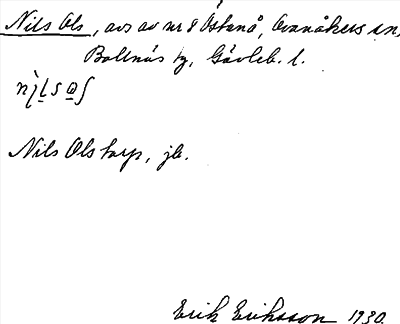 Nils Ols, avs av nr 8 Östanå, Ovanåkers sn,
Bollnäs tg, Gävleb. l.
Nils Ols torp, jb.
Erik Eriksson 1930.